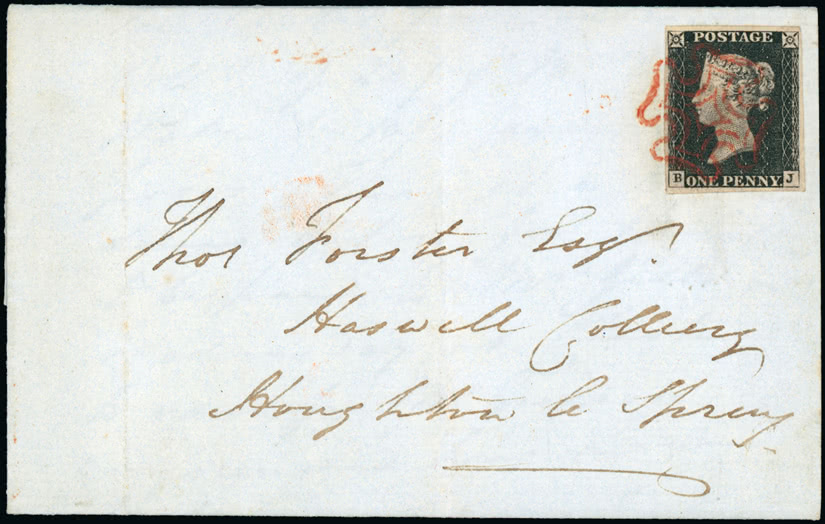 POSTAGE
B J
ONE PENNY
Thos Forster Esqr.
Haswell Colliery
Houghton le Spring